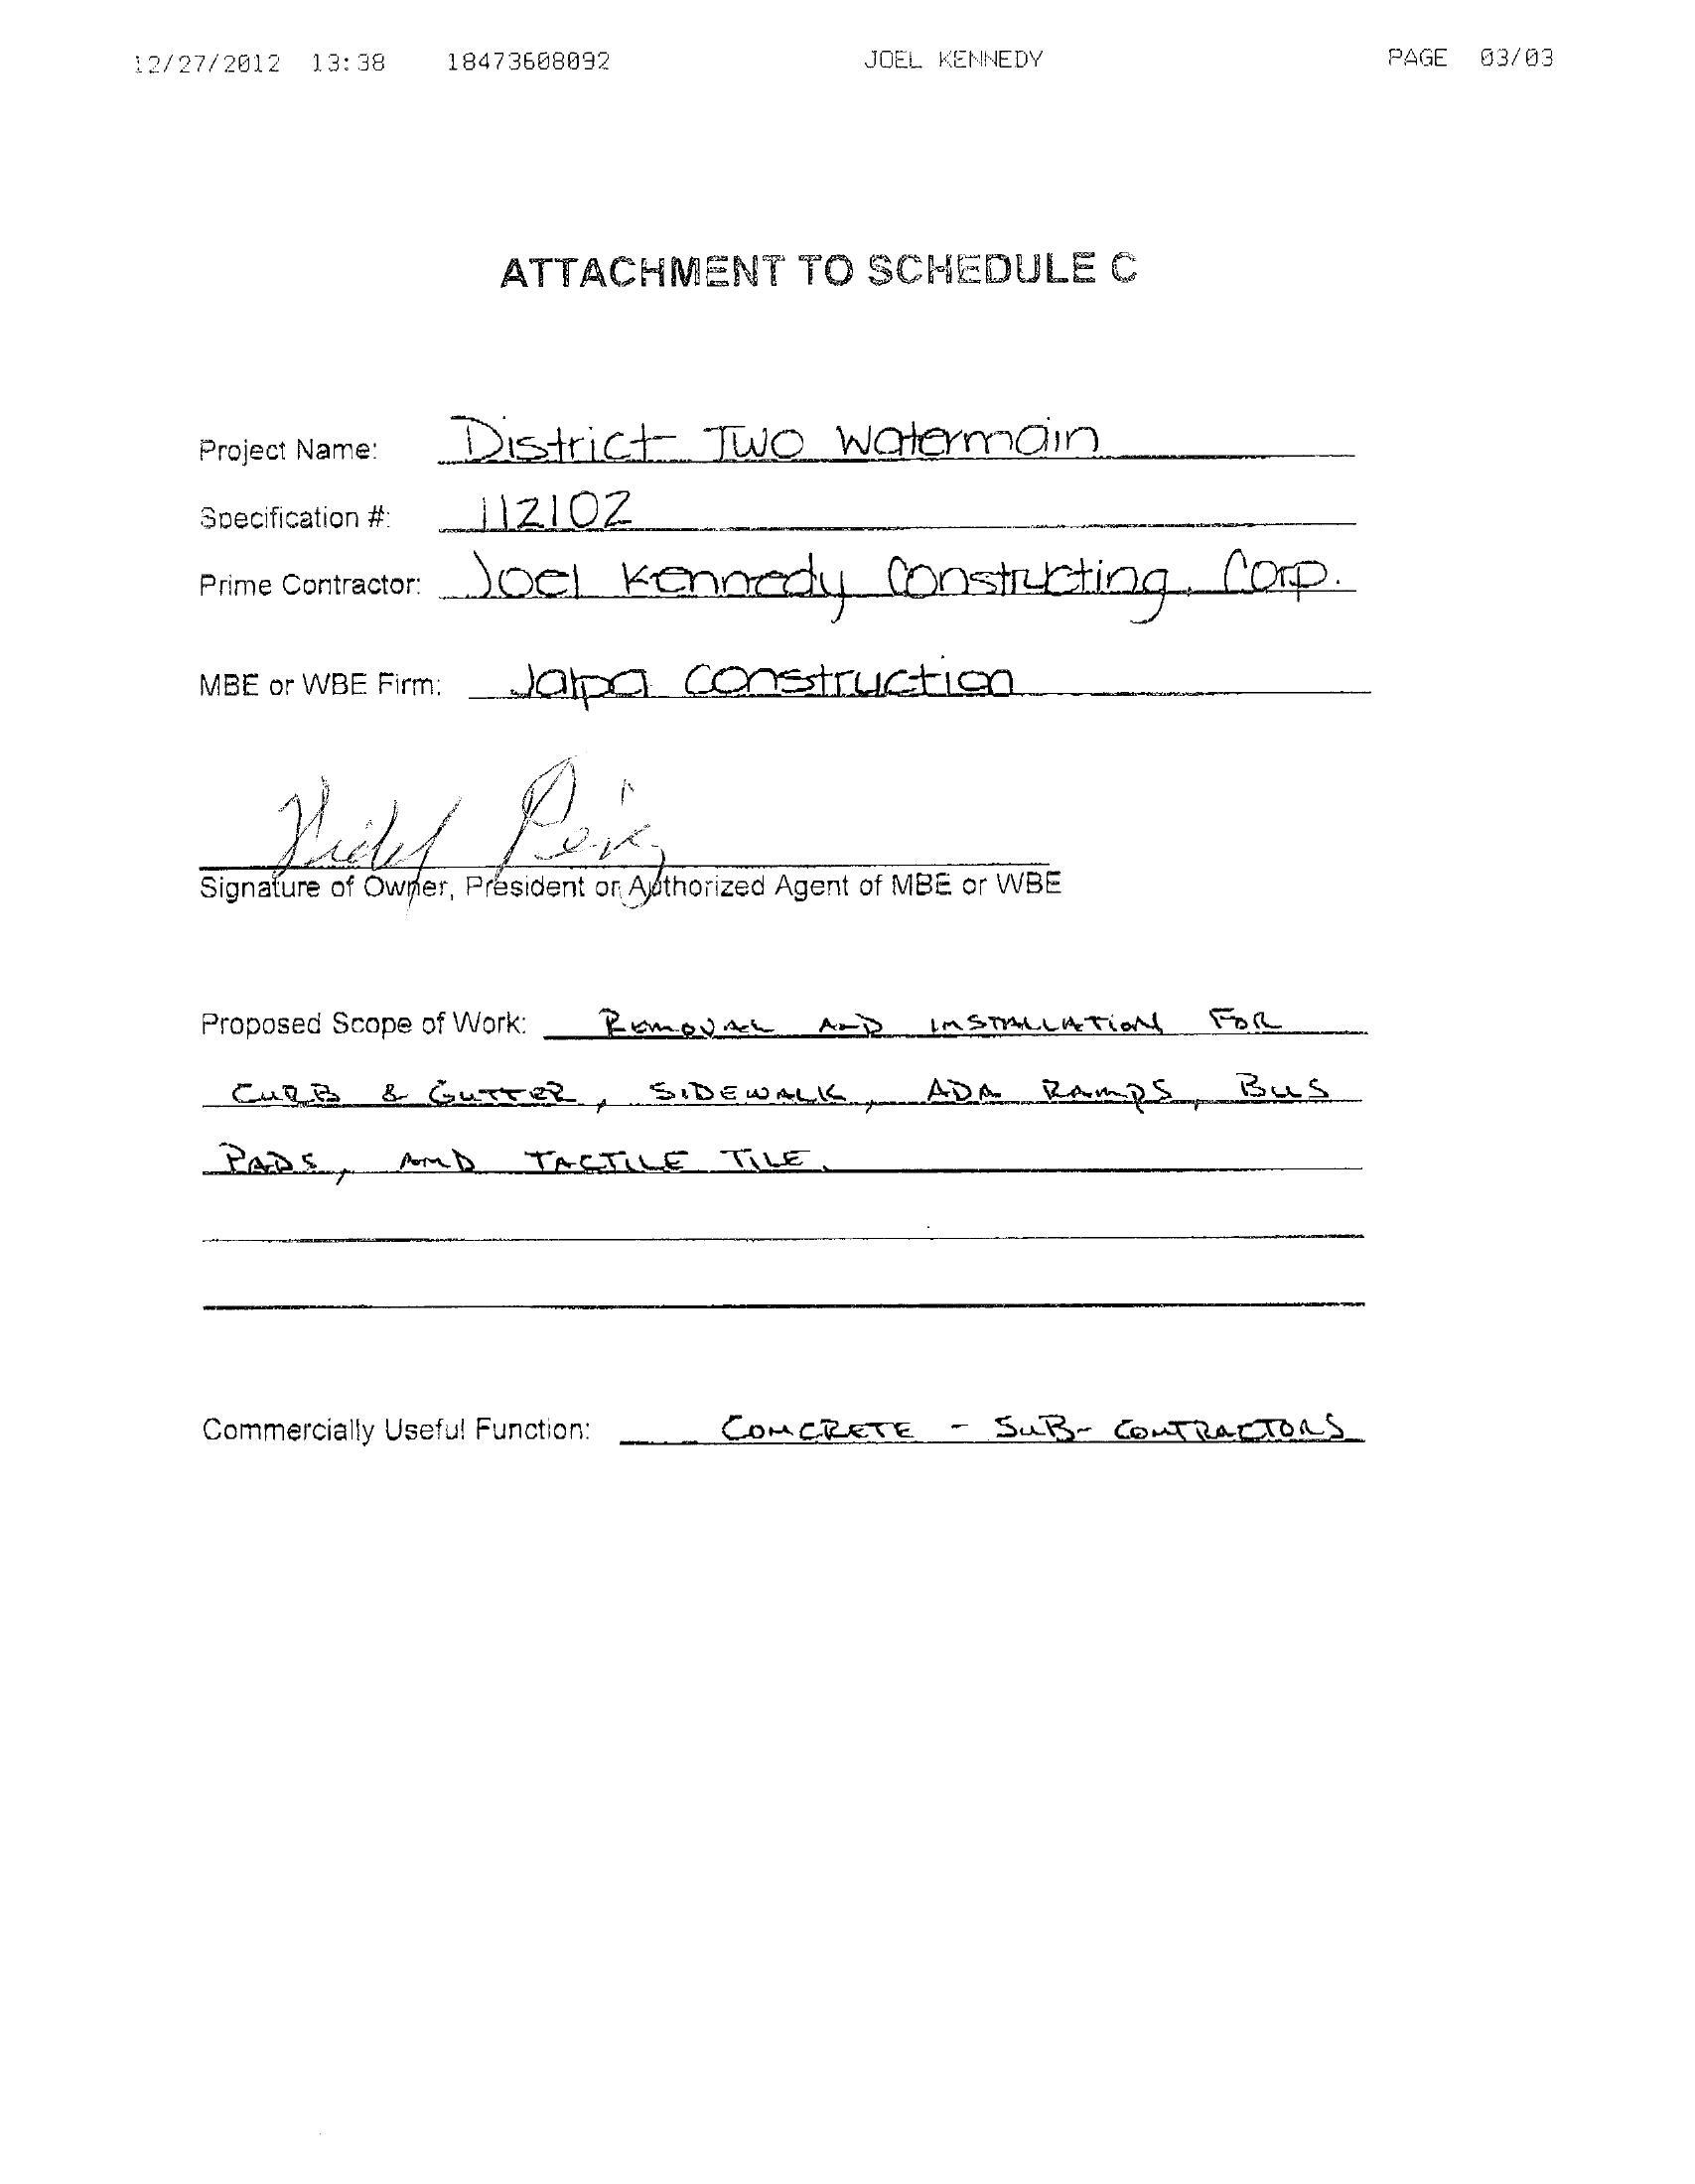 12/27/2012 13:38 18473608092 JOEL KENNEDY PAGE 03/03
ATTACHMENT TO SCHEDULE C
Project Name: District Two Watermain
Specification #: 112102
Prime Contractor: Joel Kennedy Constructing Corp.
MBE or WBE Firm: Jalpa Construction
Signature of Owner, President or Authorized Agent of MBE or WBE
Proposed Scope of Work: REMOVAL AND INSTALLATION FOR
CURB & GUTTER, SIDEWALK, ADA RAMPS, BUS
PADS, AND TACTILE TILE.
Commercially Useful Function: CONCRETE - SUB-CONTRACTORS